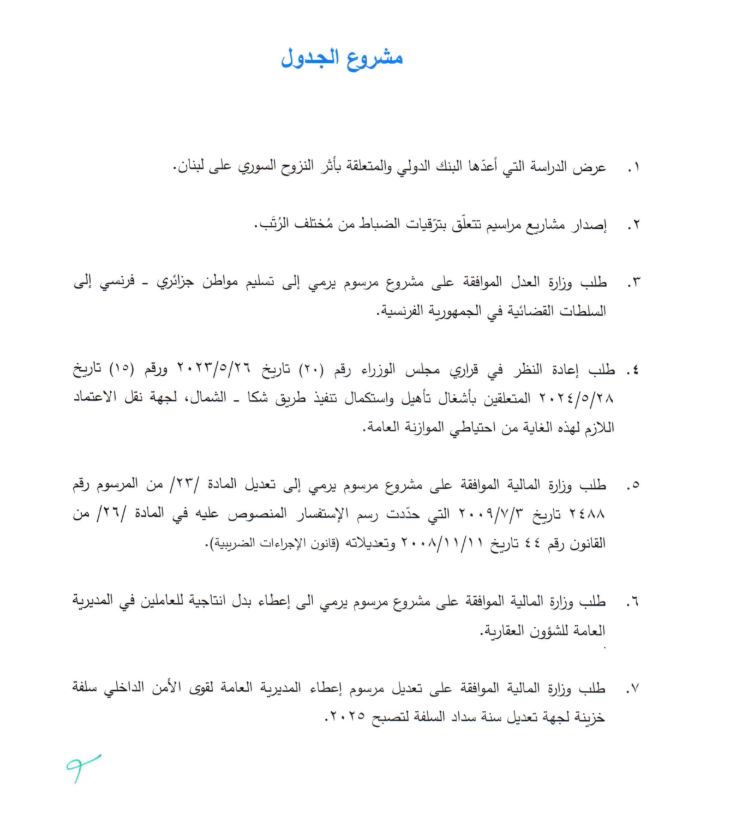 مشروع الجدول
١. عرض الدراسة التي أعدّها البنك الدولي والمتعلقة بأثر النزوح السوري على لبنان.
٢. إصدار مشاريع مراسيم تتعلّق بترّقيات الضباط من مُختلف الرُتَب.
٣. طلب وزارة العدل الموافقة على مشروع مرسوم يرمي إلى تسليم مواطن جزائري ـ فرنسي إلى
السلطات القضائية في الجمهورية الفرنسية.
٤. طلب إعادة النظر في قراري مجلس الوزراء رقم (٢٠) تاريخ ٢٠٢٣/٥/٢٦ ورقم (١٥) تاريخ
٢٠٢٤/٥/٢٨ المتعلقين بأشغال تأهيل واستكمال تنفيذ طريق شكا ـ الشمال، لجهة نقل الاعتماد
اللازم لهذه الغاية من احتياطي الموازنة العامة.
٥. طلب وزارة المالية الموافقة على مشروع مرسوم يرمي إلى تعديل المادة /٢٣/ من المرسوم رقم
٢٤٨٨ تاريخ ٢٠٠٩/٧/٣ التي حدّدت رسم الإستفسار المنصوص عليه في المادة /٢٦/ من
القانون رقم ٤٤ تاريخ ٢٠٠٨/١١/١١ وتعديلاته (قانون الإجراءات الضريبية).
٦. طلب وزارة المالية الموافقة على مشروع مرسوم يرمي الى إعطاء بدل انتاجية للعاملين في المديرية
العامة للشؤون العقارية.
٧. طلب وزارة المالية الموافقة على تعديل مرسوم إعطاء المديرية العامة لقوى الأمن الداخلي سلفة
خزينة لجهة تعديل سنة سداد السلفة لتصبح ٢٠٢٥.